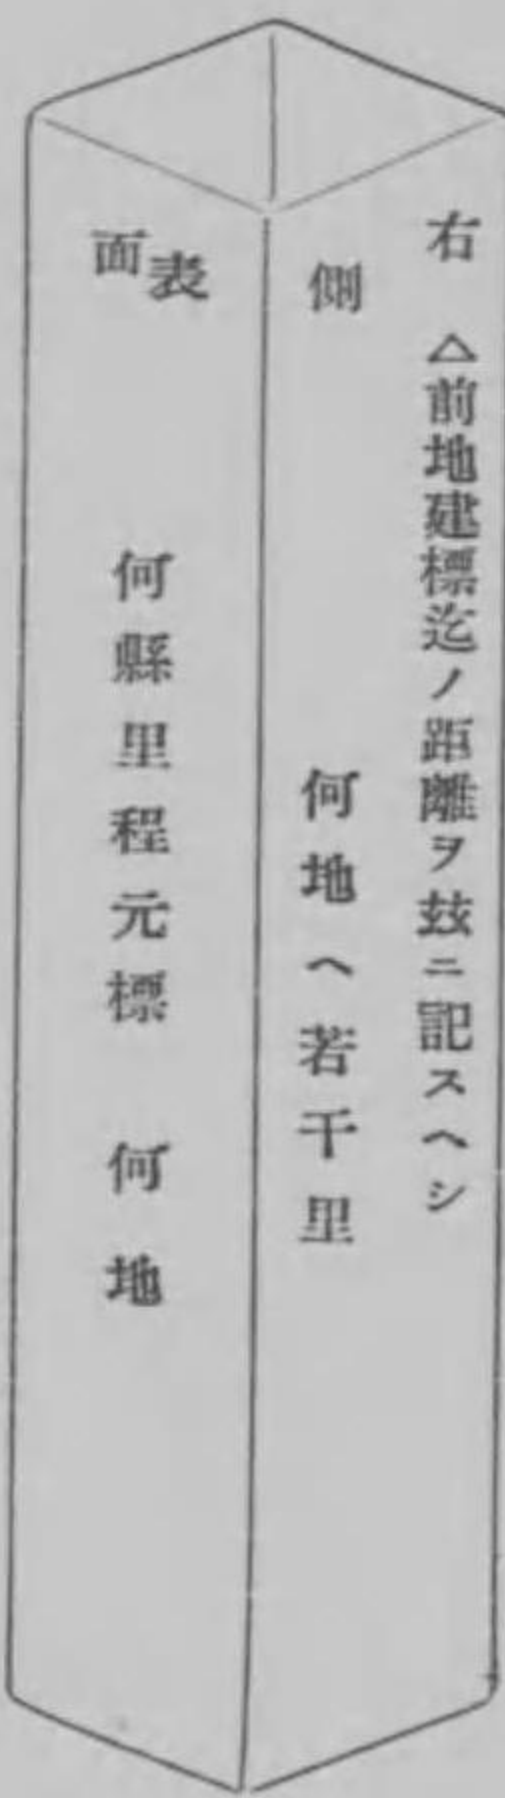 右側
△前地建標迄ノ距離ヲ玆ニ記スヘシ
何地へ若干里
表面
何縣里程元標　何地